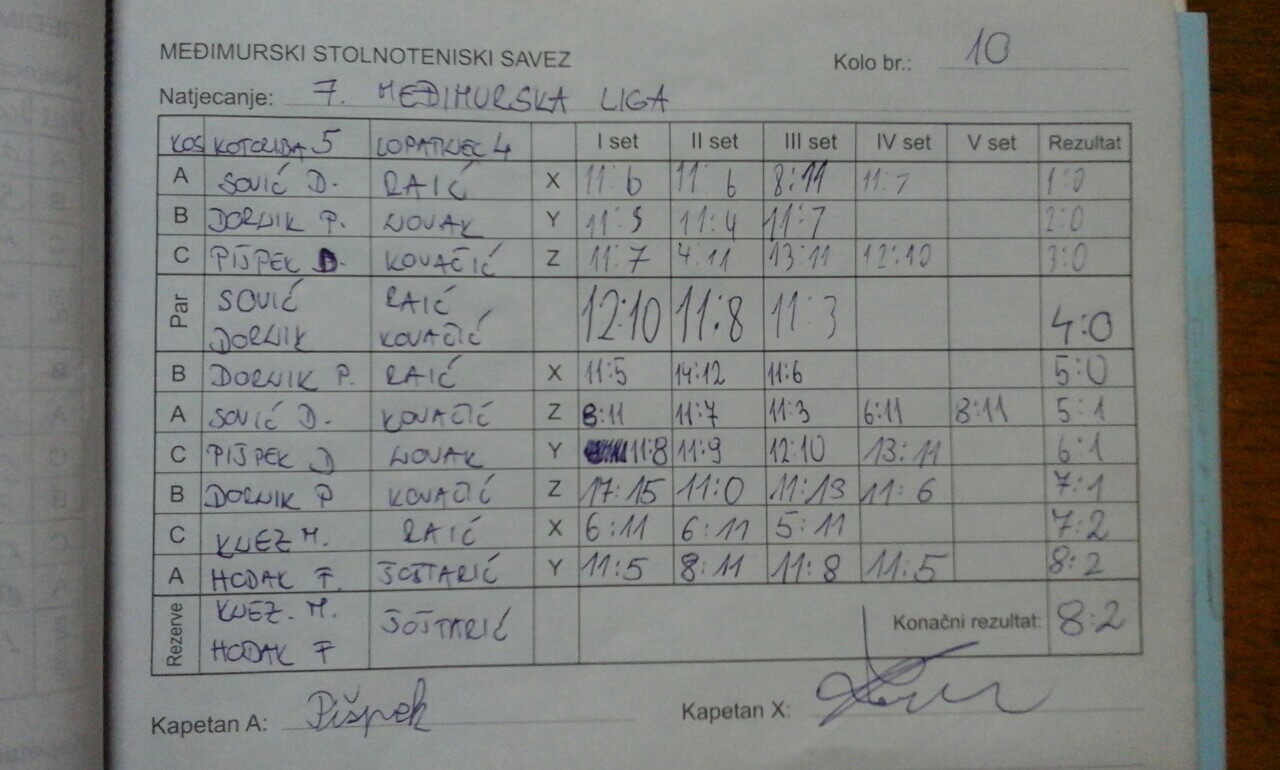 MEĐIMURSKI STOLNOTENISKI SAVEZ Kolo br.: 10
Natjecanje: 7. MEĐIMURSKA LIGA
KOTORIBA 5 LOPATINEC 4 I set II set III set IV set V set Rezultat
A SOVIĆ D. RAIĆ X 11:6 11:6 8:11 11:7 1:0
B DORNIK P. NOVAK Y 11:5 11:4 11:7 2:0
C PIŠPEK D. KOVAČIĆ Z 11:7 4:11 13:11 12:10 3:0
Par SOVIĆ RAIĆ 12:10 11:8 11:3 4:0
DORNIK KOVAČIĆ
B DORNIK P. RAIĆ X 11:5 14:12 11:6 5:0
A SOVIĆ D. KOVAČIĆ Z 8:11 11:7 11:3 6:11 8:11 5:1
C PIŠPEK D NOVAK Y 11:8 11:9 12:10 13:11 6:1
B DORNIK P KOVAČIĆ Z 17:15 11:0 11:13 11:6 7:1
C KNEZ M. RAIĆ X 6:11 6:11 5:11 7:2
A HODAK F. ŠOŠTARIĆ Y 11:5 8:11 11:8 11:5 8:2
Rezerve KNEZ. M. ŠOŠTARIĆ Konačni rezultat: 8:2
HODAK F
Kapetan A: Pišpek Kapetan X: